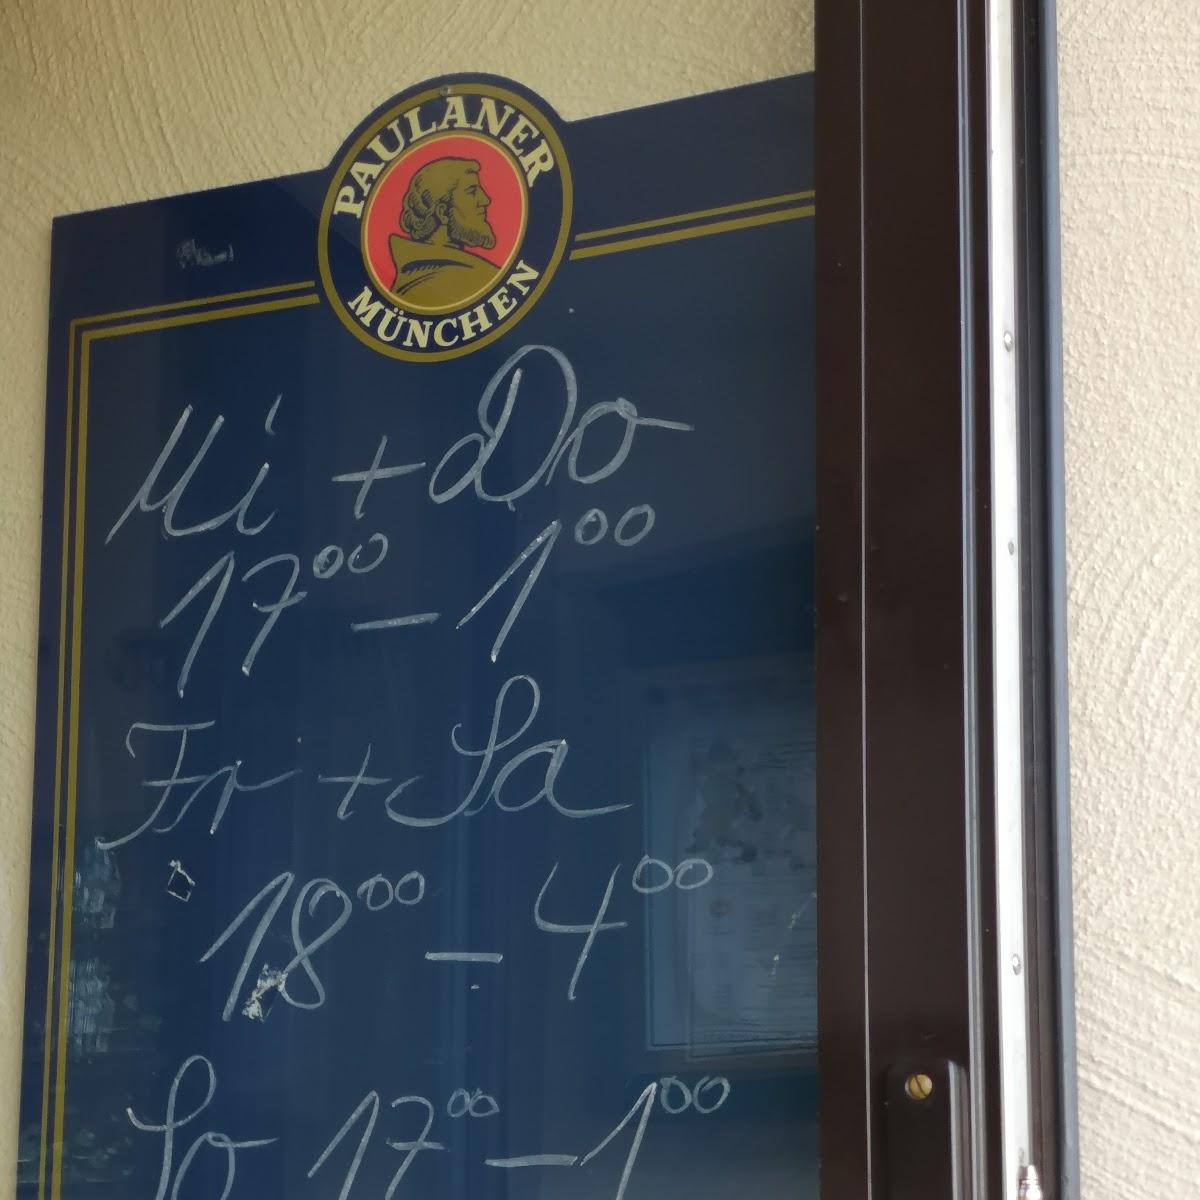 PAULANER
MÜNCHEN
Mi + Do
17⁰⁰ – 1⁰⁰
Fr + Sa
18⁰⁰ – 4⁰⁰
So 17⁰⁰ – 1⁰⁰